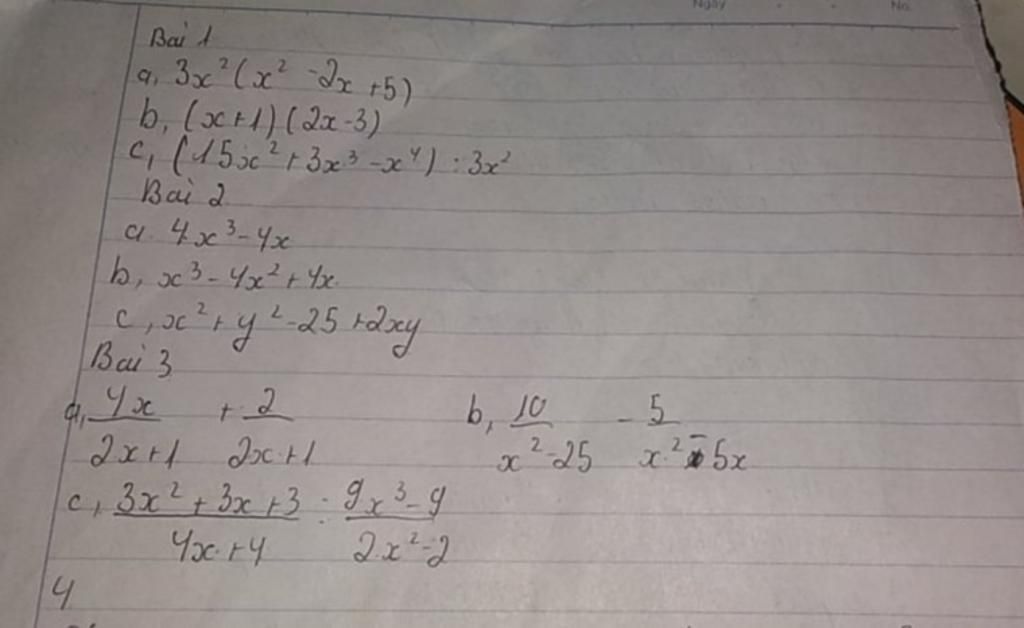 Ngày No.
Bài 1
a, 3x²(x² -2x +5)
b, (x+1)(2x-3)
c, (15x²+3x³-x⁴) : 3x²
Bài 2
a. 4x³-4x
b, x³-4x²+4x
c, x²+y²-25+2xy
Bài 3
a, 4x/(2x+1) + 2/(2x+1) b, 10/(x²-25) - 5/(x²-5x)
c, (3x²+3x+3)/(4x+4) : (9x³-9)/(2x²-2)
4